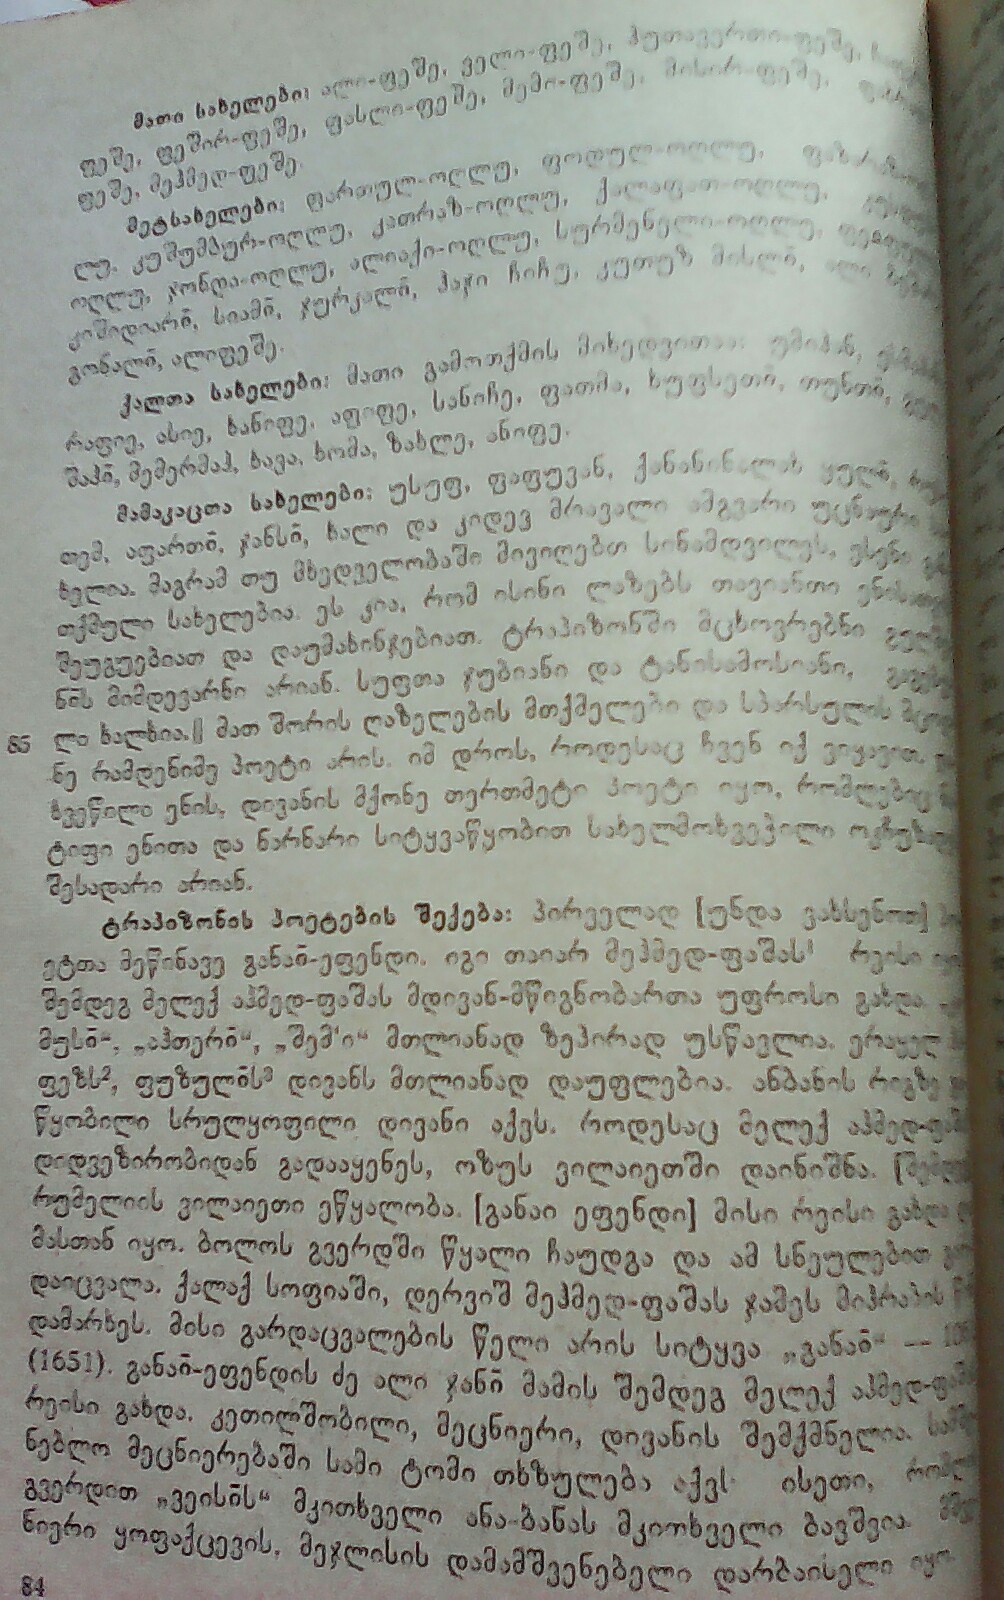 მათი სახელები: ალი-ფეშე, ველი-ფეშე, ჰუთავერთი-ფეშე,
ფეშე, ფეშირ-ფეშე, ფასლი-ფეშე, მემი-ფეშე, მისირ-ფეშე,
ფეშე, მეჰმედ-ფეშე.
მეტსახელები: ფართულ-ოღლუ, ფოდულ-ოღლუ,
ლუ, კუშუმბურ-ოღლუ, კათრაზ-ოღლუ, ქალაფათ-ოღლუ,
ოღლუ, ჯონდა-ოღლუ, ალიაქი-ოღლუ, სურმენელი-ოღლუ,
კიშიდიარი̄, სიამი̄, ჯურჯალი̄, ჰაჯი ჩიჩუ, კუთუზ მისლი̄, ალი
გონალი̄, ალიფეშე.
ქალთა სახელები: მათი გამოთქმის მიხედვითაა: უმიჰან,
რაფიე, ასიე, ხანიფე, აფიფე, სანიჩე, ფათმა, ხუფსეთი̄, თუნთი̄,
შაჰი̄, მემერმაჰ, ხავა, ხომა, ზახლე, ანიფე.
მამაკაცთა სახელები: უსუფ, ფაფუვან, ყული̄,
თემ, აფართი̄, ჯანსი̄, ხალი და კიდევ მრავალი ამგვარი უცნაური
ხელია. მაგრამ თუ მხედველობაში მივიღებთ სინამდვილეს, ესენი
თქმული სახელებია. ეს კია, რომ ისინი ლაზებს თავიანთი
შეუგუებიათ და დაუმახინჯებიათ. ტრაპიზონში მცხოვრებნი
ნის მიმდევარნი არიან. სუფთა ჯუბიანი და ტანისამოსიანი,
85 ლი ხალხია.|| მათ შორის ღაზელების მთქმელები და სპარსულის
ნე რამდენიმე პოეტი არის. იმ დროს, როდესაც ჩვენ იქ ვიყავით,
ხვეწილი ენის, დივანის მქონე თერთმეტი პოეტი იყო, რომლებიც
ტიფი ენითა და ნარნარი სიტყვაწყობით სახელმოხვეჭილი
შესადარი არიან.
ტრაპიზონის პოეტების შექება: პირველად [უნდა ვახსენოთ]
ეტთა მეწინავე განაი̄-ეფენდი. იგი თაიარ მეჰმედ-ფაშას¹ რეისი
შემდეგ მელექ აჰმედ-ფაშას მდივან-მწიგნობართა უფროსი გახდა.
მუსი̄“, „აჰთერი̄“, „შემ'ი“ მთლიანად ზეპირად უსწავლია.
ფეზს², ფუზული̄ს³ დივანს მთლიანად დაუფლებია. ანბანის რიგზე
წყობილი სრულყოფილი დივანი აქვს. როდესაც მელექ
დიდვეზირობიდან გადააყენეს, ოზუს ვილაიეთში დაინიშნა.
რუმელიის ვილაიეთი ეწყალობა. [განაი ეფენდი] მისი რეისი გახდა
მასთან იყო. ბოლოს გვერდში წყალი ჩაუდგა და ამ სნეულებით
დაიცვალა. ქალაქ სოფიაში, დერვიშ მეჰმედ-ფაშას ჯამეს მიჰრაპის
დამარხეს. მისი გარდაცვალების წელი არის სიტყვა „განაი̄“ —
(1651). განაი̄-ეფენდის ძე ალი ჯანი̄ მამის შემდეგ მელექ
რეისი გახდა. კეთილშობილი, მეცნიერი, დივანის შემქმნელია.
ნებლო მეცნიერებაში სამი ტომი თხზულება აქვს ისეთი,
გვერდით „ვეისი̄ს“ მკითხველი ანა-ბანას მკითხველი ბავშვია.
ნიერი ყოფაქცევის, მეჯლისის დამამშვენებელი დარბაისელი იყო.
84